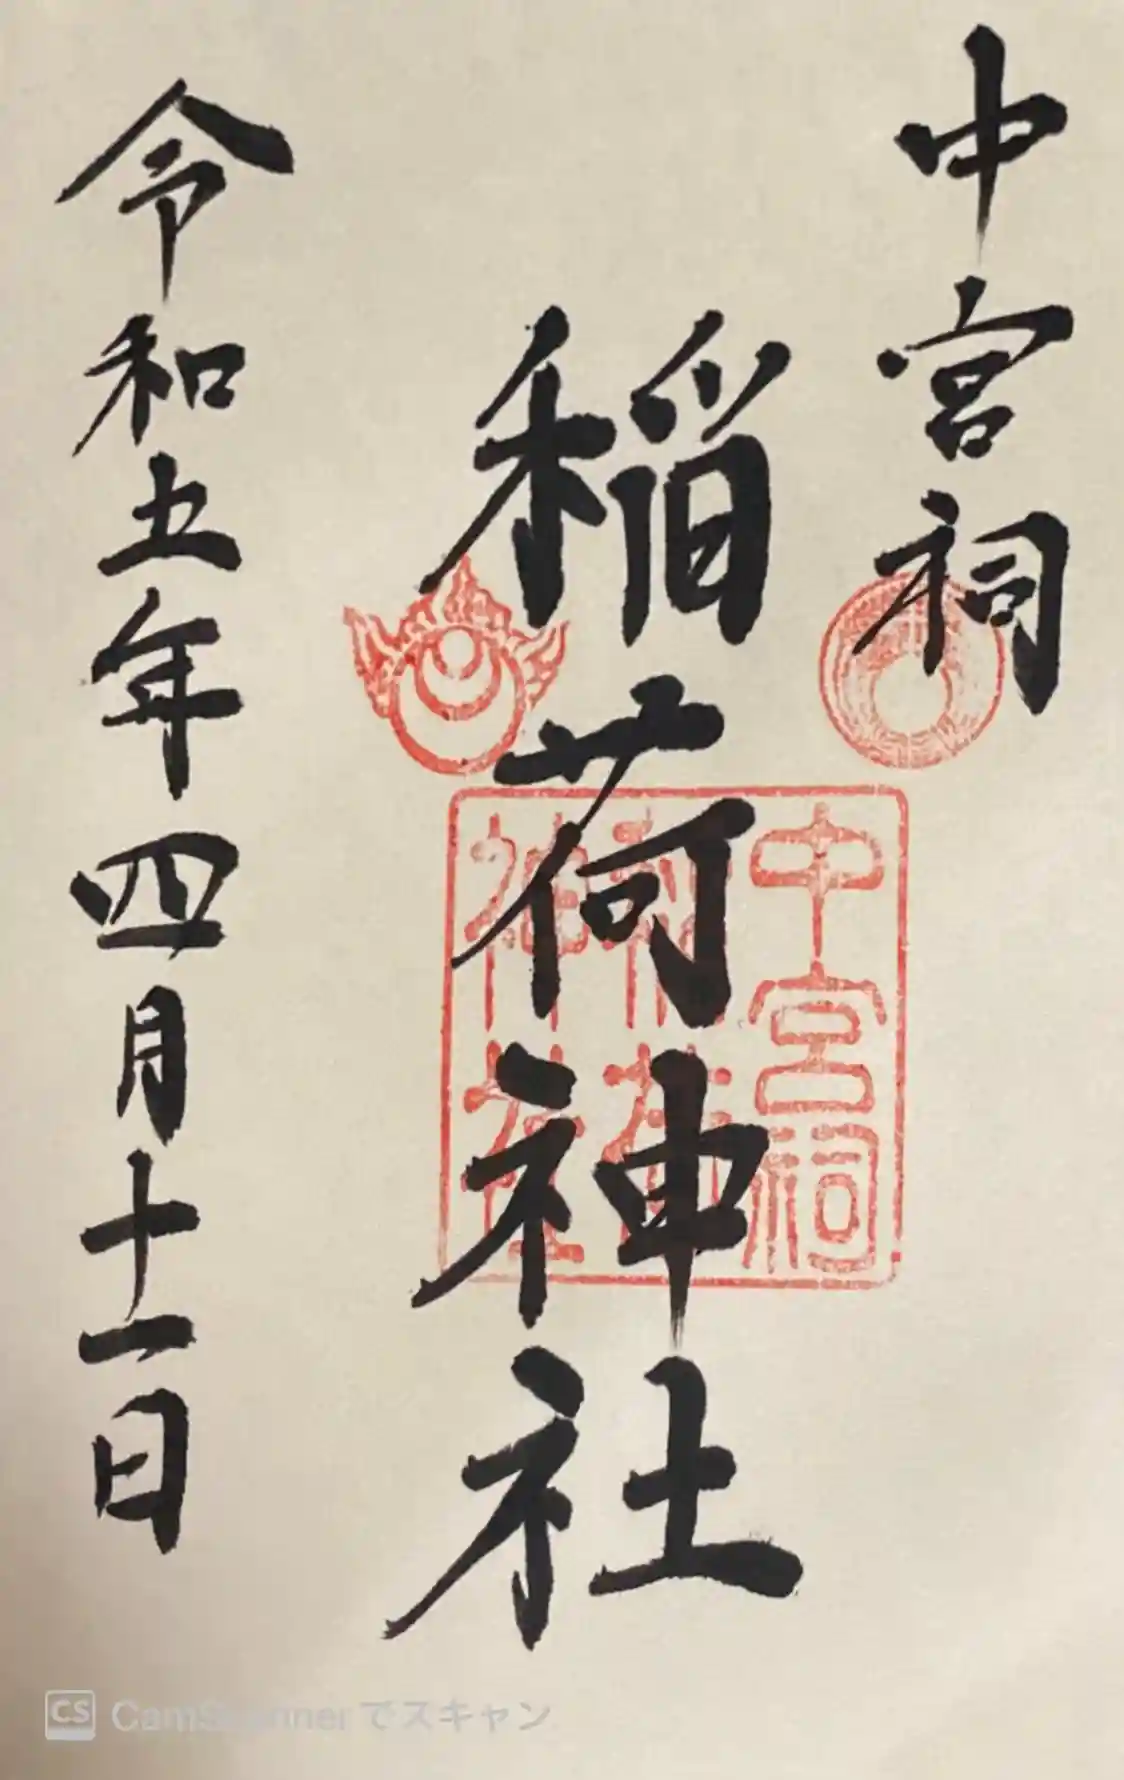 中宮祠
稲荷神社
令和五年四月十一日
中宮祠
稲荷
神社
CS CamScanner でスキャン